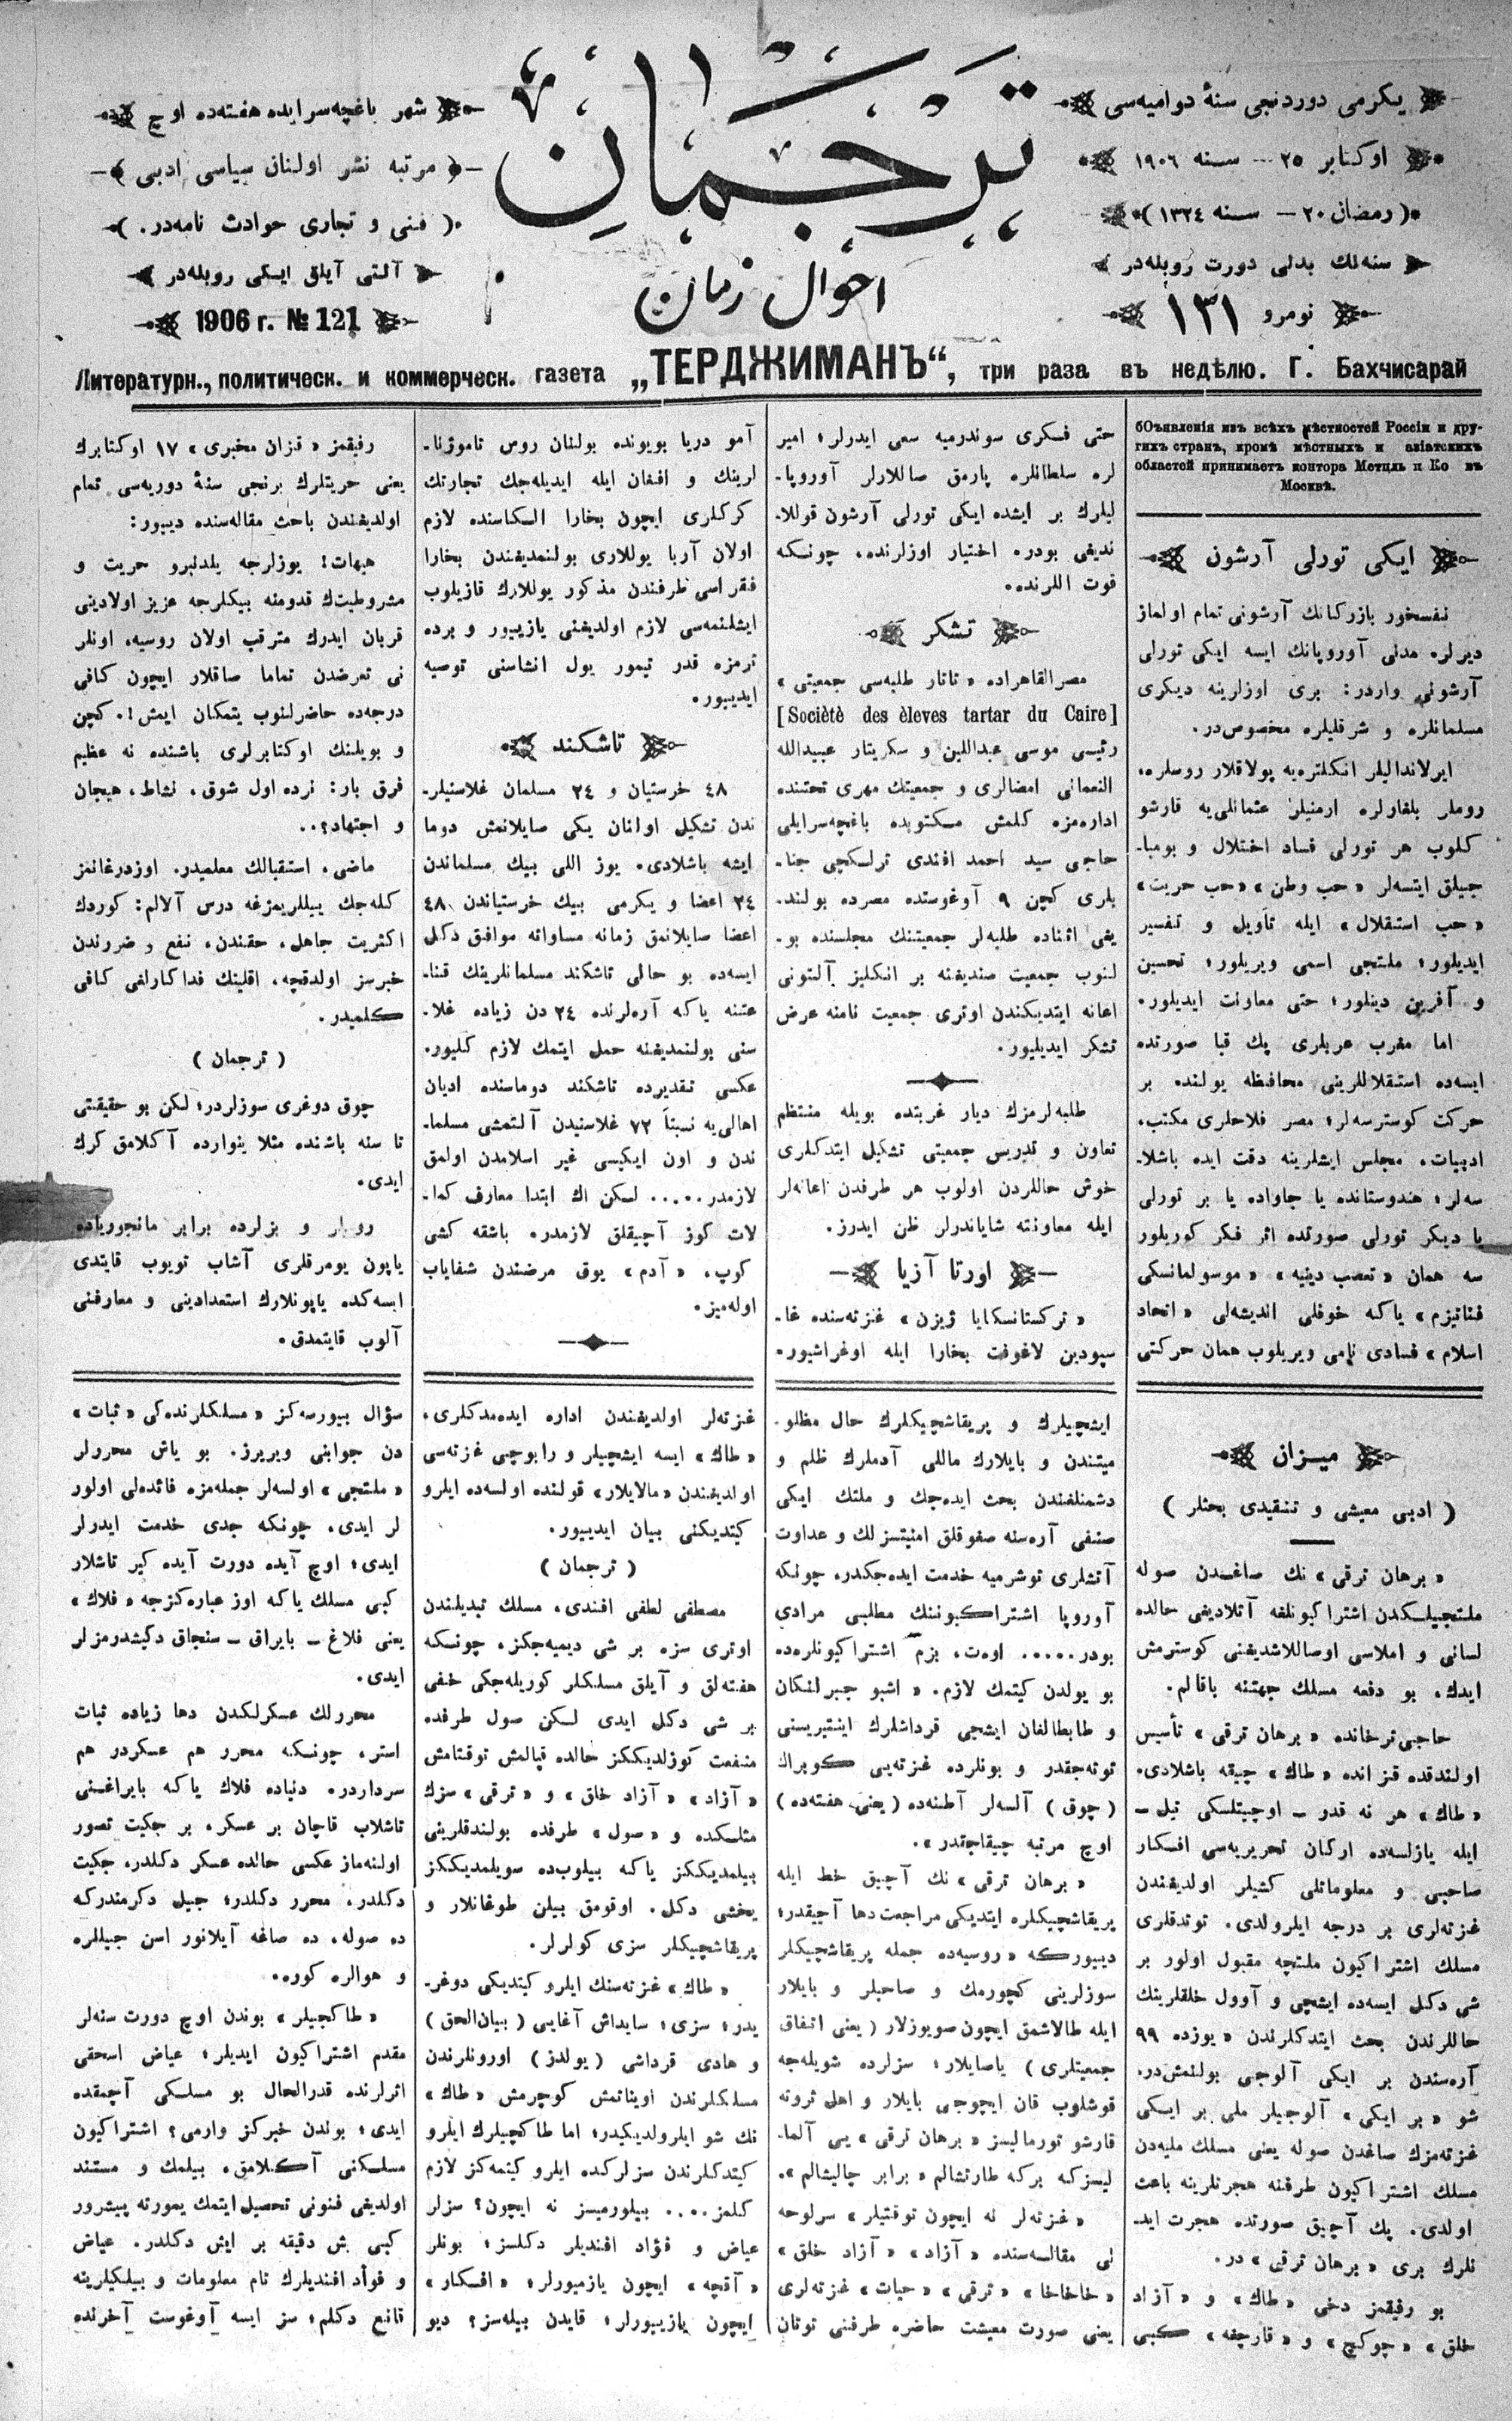 ترجمان
احوال زمان
يكرمى دوردنجى سنهٔ دواميه‌سى
اوكتابر ٢٥ — سنه ١٩٠٦
(رمضان ٢٠ — سنه ١٣٢٤)
سنه‌لك بدلى دورت روبله‌در
نومرو ١٣١
شهر باغچه‌سرايده هفته‌ده اوچ
مرتبه نشر اولنان سياسى ادبى
(فنى و تجارى حوادث نامه‌در.)
آلتى آيلق ايكى روبله‌در
1906 г. № 121
Литературн., политическ. и коммерческ. газета „ТЕРДЖИМАНЪ“, три раза въ недѣлю. Г. Бахчисарай
бОъявленія изъ всѣхъ мѣстностей Россіи и дру-
гихъ странъ, кромѣ мѣстныхъ и азіатскихъ
областей принимаетъ контора Метцль и Ко въ
Москвѣ.
ايكى تورلى آرشون
نفسخور بازركانك آرشونى تمام اولماز
ديرلر. مدنى آوروپانك ايسه ايكى تورلى
آرشونى واردر: برى اوزلرينه ديكرى
مسلمانلره و شرقليلره مخصوص‌در.
ايرلانداليلر انكلتره‌يه پولاقلار روسلره،
روملر بلغاولره ارمنيلر عثمانلى‌يه قارشو
كلوب هر تورلى فساد اختلال و بومبا-
جيلق ايتسه‌لر «حب وطن» «حب حريت»
«حب استقلال» ايله تأويل و تفسير
ايديلور؛ ملتجى اسمى ويريلور؛ تحسين
و آفرين دينلور؛ حتى معاونت ايديلور.
اما مغرب عربلرى پك قبا صورتده
ايسه‌ده استقلاللرينى محافظه يولنده بر
حركت كوسترسه‌لر؛ مصر فلاحلرى مكتب،
ادبيات، مجلس ايشلرينه دقت ايده باشلا-
سه‌لر؛ هندوستانده يا جاواده يا بر تورلى
يا ديكر تورلى صورتده اثر فكر كوريلور
سه همان «تعصب دينيه» «موسولمانسكى
فناتيزم» ياكه خوفلى انديشه‌لى «اتحاد
اسلام» فسادى نامى ويريلوب همان حركتى
حتى فكرى سوندرميه سعى ايدرلر؛ امير
لره سلطانلره پارمق صاللارلر آوروپا-
ليلرك بر ايشده ايكى تورلى آرشون قوللا-
نديغى بودر. اختيار اوزلرنده، چونكه
قوت اللرنده.
تشكر
مصرالقاهراده «تاتار طلبه‌سى جمعيتى»
[Sociètè des èleves tartar du Caire]
رئيسى موسى عبداللين و سكريتار عبيدالله
النعمانى امضالرى و جمعيتك مهرى تحتنده
اداره‌مزه كلمش مكتوبده باغچه‌سرايلى
حاجى سيد احمد افندى ترلكچى جنا-
بلرى كچن ٩ آوغوستده مصرده بولند-
يغى اثناده طلبه‌لر جمعيتنك مجلسنده بو-
لنوب جمعيت صنديغنه بر انكليز آلتونى
اعانه ايتديكندن اوترى جمعيت نامنه عرض
تشكر ايديليور.
طلبه‌لرمزك ديار غربتده بويله منتظم
تعاون و تدريس جمعيتى تشكيل ايتدكلرى
خوش حاللردن اولوب هر طرفدن اعانه‌لر
ايله معاونته شاياندرلر ظن ايدرز.
اورتا آزيا
«تركستانسكايا ژيزن» غزته‌سنده غا-
سپودين لاغوفت بخارا ايله اوغراشيور.
آمو دريا بويونده بولنان روس تاموژنا-
لرينك و افغان ايله ايديله‌جك تجارتك
كركلرى ايچون بخارا الكاسنده لازم
اولان آربا يوللارى بولنمديغندن بخارا
فقراسى طرفندن مذكور يوللارك قازيلوب
ايشلنمه‌سى لازم اولديغنى يازييور و برده
ترمزه قدر تيمور يول انشاسنى توصيه
ايدييور.
تاشكند
٤٨ خرستيان و ٢٤ مسلمان غلاسنيلر-
ندن تشكيل اولنان يكى صايلانمش دوما
ايشه باشلادى. يوز اللى بيك مسلماندن
٢٤ اعضا و يكرمى بيك خرستياندن ٤٨
اعضا صايلانمق زمانه مساواته موافق دكل
ايسه‌ده بو حالى تاشكند مسلمانلرينك قنا-
عتنه ياكه آره‌لرنده ٢٤ دن زياده غلا-
سنى بولنمديغنه حمل ايتمك لازم كليور.
عكسى تقديرده تاشكند دوماسنده اديان
اهالى‌يه نسبتاً ٧٢ غلاسنيدن آلتمشى مسلما-
ندن و اون ايكيسى غير اسلامدن اولمق
لازمدر..... لكن اك ابتدا معارف كما-
لات كوز آچيقلق لازمدر. باشقه كشى
كوپ، «آدم» يوق مرضندن شفاياب
اوله‌ميز.
رفيقمز «قزان مخبرى» ١٧ اوكتابرك
يعنى حريتلرك برنجى سنهٔ دوريه‌سى تمام
اولديغندن باحث مقاله‌سنده دييور:
هيهات! يوزلرجه يلدنبرو حريت و
مشروطيتك قدومنه بيكلرجه عزيز اولادينى
قربان ايدرك مترقب اولان روسيه، اونلر
نى تعرضدن تماما صاقلار ايچون كافى
درجه‌ده حاضرلنوب يتمكان ايمش!. كچن
و بويلنك اوكتابرلرى باشنده نه عظيم
فرق بار: نرده اول شوق، نشاط، هيجان
و اجتهاد؟..
ماضى، استقبالك معلميدر. اوزدرغانمز
كله‌جك ييللريمزغه درس آلالم: كوردك
اكثريت جاهل، حقندن، نفع و ضررندن
خبرسز اولدقچه، اقليتك فداكارلغى كافى
كلميدر.
(ترجمان)
چوق دوغرى سوزلردر؛ لكن بو حقيقتى
تا سنه باشنده مثلا ينوارده آكلامق كرك
ايدى.
روسلر و بزلرده برابر مانجورياده
ياپون يومرقلرى آشاب تويوب قايتدى
ايسه‌كده ياپونلارك استعدادينى و معارفنى
آلوب قايتمدق.
ميزان
(ادبى معيشى و تنقيدى بحثلر)
«برهان ترقى» نك صاغدن صوله
ملتجيلكدن اشتراكيونلغه آتلاديغى حالده
لسانى و املاسى اوصاللاشديغنى كوسترمش
ايدك. بو دفعه مسلك جهتنه باقالم.
حاجى‌ترخانده «برهان ترقى» تأسيس
اولندقده قزانده «طاك» چيقه باشلادى.
«طاك» هر نه قدر — اوچيتلسكى تيل —
ايله يازلسه‌ده اركان تحريريه‌سى افكار
صاحبى و معلوماتلى كشيلر اولديغندن
غزته‌لرى بر درجه ايلرولدى. توتدقلرى
مسلك اشتراكيون ملتچه مقبول اولور بر
شى دكل ايسه‌ده ايشچى و آوول خلقلرينك
حاللرندن بحث ايتدكلرندن «يوزده ٩٩
آره‌سندن بر ايكى آلوجى بولنمش‌در.
شو «بر ايكى» آلوجيلر ملى بر ايكى
غزته‌مزك صاغدن صوله يعنى مسلك مليه‌دن
مسلك اشتراكيون طرفنه هجرتلرينه باعث
اولدى. پك آچيق صورتده هجرت ايد-
نلرك برى «برهان ترقى» در.
بو رفيقمز دخى «طاك» و «آزاد
خلق» «چوكچ» و «قارچغه» كبى
ايشچيلرك و پريقاشچيكلرك حال مظلو-
ميتندن و بايلارك ماللى آدملرك ظلم و
دشمنلغندن بحث ايده‌جك و ملتك ايكى
صنفى آره‌سنه صغوقلق امنيتسزلك و عداوت
آتشلرى توشرميه خدمت ايده‌جكدر، چونكه
آوروپا اشتراكيوننك مطلبى مرادى
بودر..... اوت، بزم اشتراكيونلره‌ده
بو يولدن كيتمك لازم. «اشبو جبرلنكان
و طابطالغان ايشچى قرداشلرك اينتيريسنى
توته‌جقدر و بونلرده غزته‌يى كوبراك
(چوق) آلسه‌لر آطنه‌ده (يعنى هفته‌ده)
اوچ مرتبه چيقاجقدر».
«برهان ترقى» نك آچيق خط ايله
پريقاشچيكلره ايتديكى مراجعت دها آجيقدر؛
دييوركه «روسيه‌ده جمله پريقاشچيكلر
سوزلرينى كچورمك و صاحبلر و بايلار
ايله طالاشمق ايچون صويوزلار (يعنى اتفاق
جمعيتلرى) ياصايلار؛ سزلرده شويله‌جه
قوشلوب قان ايچوجى بايلار و اهل ثروته
قارشو تورماليسز «برهان ترقى» يى آلما-
ليسزكه بركه طارتشالم «برابر چاليشالم».
«غزته‌لر نه ايچون توقتيلر» سرلوحه
لى مقاله‌سنده «آزاد» «آزاد خلق»
«خاخاخا» «ترقى» «حيات» غزته‌لرى
يعنى صورت معيشت حاضره طرفنى توتان
غزته‌لر اولديغندن اداره ايده‌مدكلرى،
«طاك» ايسه ايشچيلر و رابوچى غزته‌سى
اولديغندن «مالايلار» قولنده اولسه‌ده ايلرو
كيتديكنى بيان ايدييور.
(ترجمان)
مصطفى لطفى افندى، مسلك تبديلندن
اوترى سزه بر شى ديميه‌جكز، چونكه
هفته‌لق و آيلق مسلكلر كوريله‌جكى خفى
بر شى دكل ايدى لكن صول طرفده
منفعت كوزلديككز حالده قپالمش توقتامش
«آزاد» «آزاد خلق» و «ترقى» سزك
مثلكده و «صول» طرفده بولندقلرينى
بيلمديككز ياكه بيلوب‌ده سويلمديككز
يخشى دكل. اوقومق بيلن طوغانلار و
پريقاشچيكلر سزى كولرلر.
«طاك» غزته‌سنك ايلرو كيتديكى دوغر-
يدر؛ سزى؛ سايداش آغايى (بيان‌الحق)
و هادى قرداشى (يولدز) اورونلرندن
مسلكلرندن اويناتمش كوچرمش «طاك»
نك شو ايلرولديكيدر؛ اما طاكچيلرك ايلرو
كيتدكلرندن سزلركده ايلرو كيتمه‌كز لازم
كلمز.... بيلورميسز نه ايچون؟ سزلر
عياض و فؤاد افنديلر دكلسز؛ بونلر
«آقچه» ايچون يازميورلر؛ «افكار»
ايچون يازييورلر؛ قايدن بيله‌سز؟ ديو
سؤال بيورسه‌كز «مسلكلرنده‌كى «ثبات»
دن جوابنى ويريرز. بو ياش محررلر
«ملتجى» اولسه‌لر جمله‌مزه فائده‌لى اولور
لر ايدى، چونكه جدى خدمت ايدرلر
ايدى؛ اوچ آيده دورت آيده كير تاشلار
كبى مسلك ياكه اوز عباره‌كزجه «فلاك»
يعنى فلاغ — بايراق — سنجاق دكيشدرمزلر
ايدى.
محررلك عسكرلكدن دها زياده ثبات
استر، چونكه محرر هم عسكردر هم
سرداردر. دنياده فلاك ياكه بايراغنى
تاشلاب قاچان بر عسكر، بر جكيت تصور
اولنه‌ماز عكسى حالده عسكر دكلدر، جكيت
دكلدر، محرر دكلدر؛ جيل دكرمندركه
ده صوله، ده صاغه آيلانور اسن جيللره
و هوالره كوره.
«طاكچيلر» بوندن اوچ دورت سنه‌لر
مقدم اشتراكيون ايديلر؛ عياض اسحقى
اثرلرنده قدرالحال بو مسلكى آچمقده
ايدى؛ بوندن خبركز وارمى؟ اشتراكيون
مسلكنى آكلامق، بيلمك و مستند
اولديغى فنونى تحصيل ايتمك يمورته پيشرور
كبى بش دقيقه بر ايش دكلدر. عياض
و فوأد افنديلرك تام معلومات و بيلكيلرينه
قانع دكلم؛ سز ايسه آوغوست آخرنده